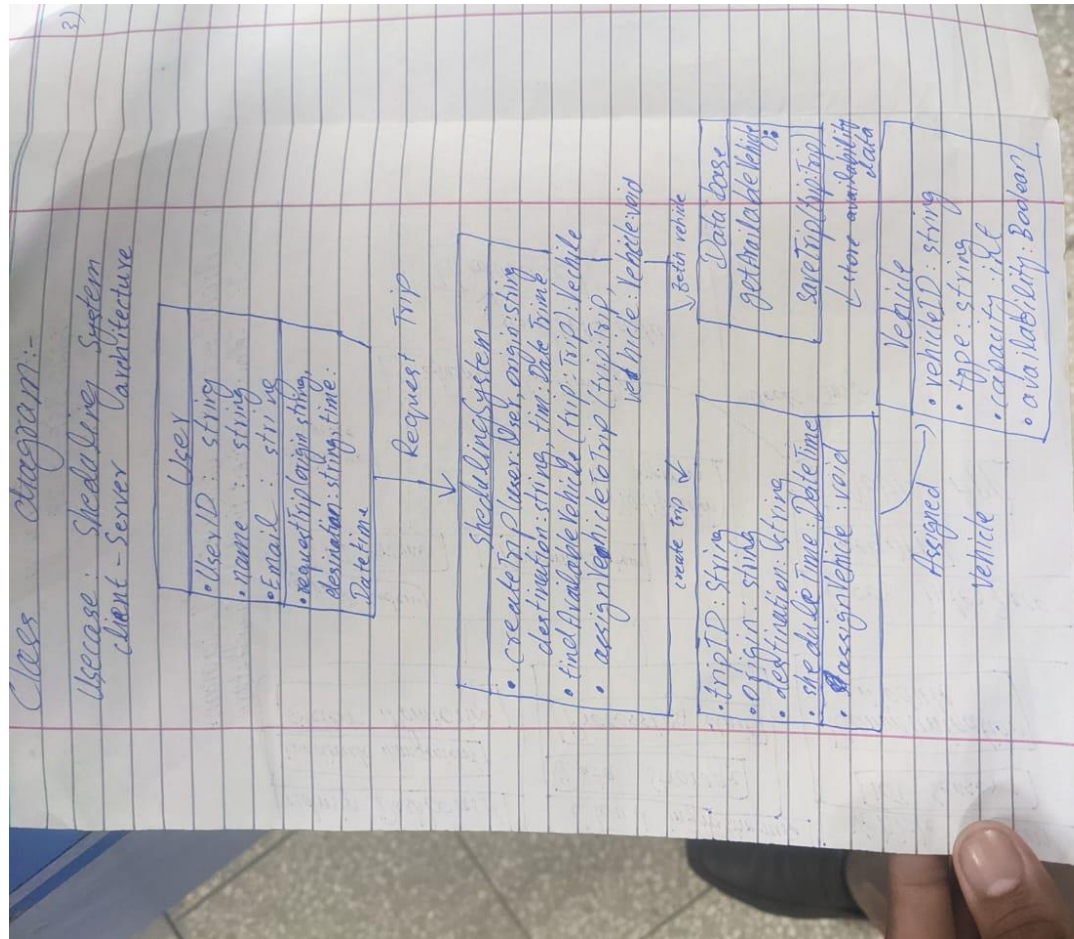 3)
Class diagram:-
Usecase: Shedaling System
client-Server architecture
User
• UserID : string
• name : string
• Email : string
• requestTrip(origin string,
destination: string, time:
Datetime
Request Trip
shedulingSystem
• createTrip(user: User, origin: string
destination: string, tim: Date Time
• findAvailableVehicle (trip: trip): Vechile
• assignVehicleToTrip (trip: trip,
vehicle: Vehicle: void
create trip
Fetch vehicle
• tripID: string
• origin: string
• destination: string
• sheduleTime: DateTime
• assignVehicle: void
Data base
getAvailableVehicle
():
saveTrip(trip: Trip)
store availability
data
Assigned
vehicle
Vehicle
• vehicleID: string
• type: string
• capacity:
• availability: Boolean